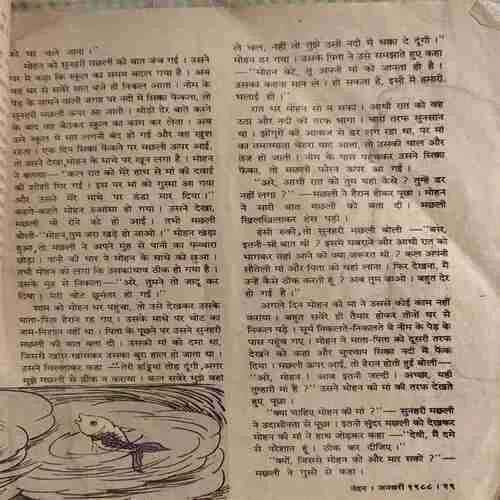 को घर चले जाना।"
मोहन को सुनहरी मछली की बात जंच गई। उसने
घर में कहा कि स्कूल का समय बदल गया है। अब
वह घर से सवेरे सात बजे ही निकल आता। नीम के
पेड़ के सामने वाली जगह पर नदी में सिक्का फेंकता, तो
सुनहरी मछली ऊपर आ जाती। थोड़ी देर बातें करने
के बाद वह बैठकर स्कूल का काम कर लेता। अब
उसे स्कूल में मार लगनी बंद हो गई और वह खुश
रहता। एक दिन सिक्का फेंकने पर मछली ऊपर आई,
तो उसने देखा, मोहन के माथे पर खून लगा है। मोहन
ने बताया—"कल रात को मेरे हाथ से मां की दवाई
की शीशी गिर गई। इस पर मां को गुस्सा आ गया
और उसने मेरे माथे पर डंडा मार दिया।"
कहते-कहते मोहन रुआंसा हो गया। उसने देखा,
मछली भी रोने को हो आई। तभी मछली
बोली—"मोहन, तुम जरा खड़े हो जाओ।" मोहन खड़ा
हुआ, तो मछली ने अपने मुंह से पानी का फव्वारा
छोड़ा। पानी की धार ने मोहन के माथे को छुआ।
तभी मोहन को लगा कि उसका घाव ठीक हो गया है।
उसके मुंह से निकला—"अरे, तुमने तो जादू कर
दिया। मेरी चोट छूमंतर हो गई।"
शाम को मोहन घर पहुंचा, तो उसे देखकर उसके
माता-पिता हैरान रह गए। उसके माथे पर चोट का
नाम-निशान नहीं था। पिता के पूछने पर उसने सुनहरी
मछली की बात बता दी। उसकी मां को दमा था,
जिससे खांस-खांसकर उसका बुरा हाल हो जाता था।
उसने चिल्लाकर कहा—"तेरी हड्डियां तोड़ दूंगी, अगर
मुझे मछली से ठीक न कराया। कल सवेरे मुझे वहां
ले चल, नहीं तो तुझे उसी नदी में धक्का दे दूंगी।"
मोहन डर गया। उसके पिता ने उसे समझाते हुए कहा
—"मोहन बेटे, तू अपनी मां को जानता ही है।
उसका कहना मान ले। हो सकता है, इसी में हमारी
भलाई हो।"
रात भर मोहन सो न सका। आधी रात को वह
उठा और नदी की तरफ भागा। चारों तरफ सुनसान
था। झींगुरों की आवाज से डर लग रहा था, पर मां
का तमतमाया चेहरा याद आता, तो उसकी चाल और
तेज हो जाती। नीम के पास पहुंचकर उसने सिक्का
फेंका, तो मछली फौरन ऊपर आ गई।
"अरे, आधी रात को तुम यहां कैसे? तुम्हें डर
नहीं लगा?"—मछली ने हैरान होकर पूछा। मोहन
ने सारी बात मछली को बता दी। मछली
खिलखिलाकर हंस पड़ी।
हंसी रुकी, तो सुनहरी मछली बोली—"बस,
इतनी-सी बात थी? इसमें घबराने और आधी रात को
भागकर यहां आने की क्या जरूरत थी? कल अपनी
सौतेली मां और पिता को यहां लाना। फिर देखना, मैं
उन्हें कैसे ठीक करती हूं? अब तुम जाओ। बहुत देर
हो गई है।"
अगले दिन मोहन की मां ने उससे कोई काम नहीं
कराया। बहुत सवेरे ही तैयार होकर तीनों घर से
निकल पड़े। सूर्य निकलते-निकलते वे नीम के पेड़ के
पास पहुंच गए। मोहन ने माता-पिता को दूसरी तरफ
देखने को कहा और चुपचाप सिक्का नदी में फेंक
दिया। मछली ऊपर आई, तो हैरान होती हुई बोली—
"अरे, मोहन! आज इतनी जल्दी। अच्छा, यही
तुम्हारी मां है?" उसने मोहन की मां की तरफ देखते
हुए पूछा।
"क्या चाहिए मोहन की मां?"— सुनहरी मछली
ने उदासीनता से पूछा। इतनी सुंदर मछली को देखकर
मोहन की मां ने हाथ जोड़कर कहा—"देवी, मैं दमे
से परेशान हूं। ठीक कर दीजिए।"
"क्यों, जिससे मोहन को और मार सको?"—
मछली ने गुस्से से कहा।
नंदन। जनवरी १९८८। २९